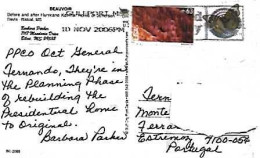 BEAUVOIR
Before and after Hurricane Katrina
Barbara Parker
GULFPORT M
10 NOV 2006PM
PPCO Oct General
Fernando, They're in
the Planning Phase
of rebuilding the
Presidential Home
to Original.
Barbara Parker
Fern
Monte
Terra
Estremoz 7100-054
Portugal